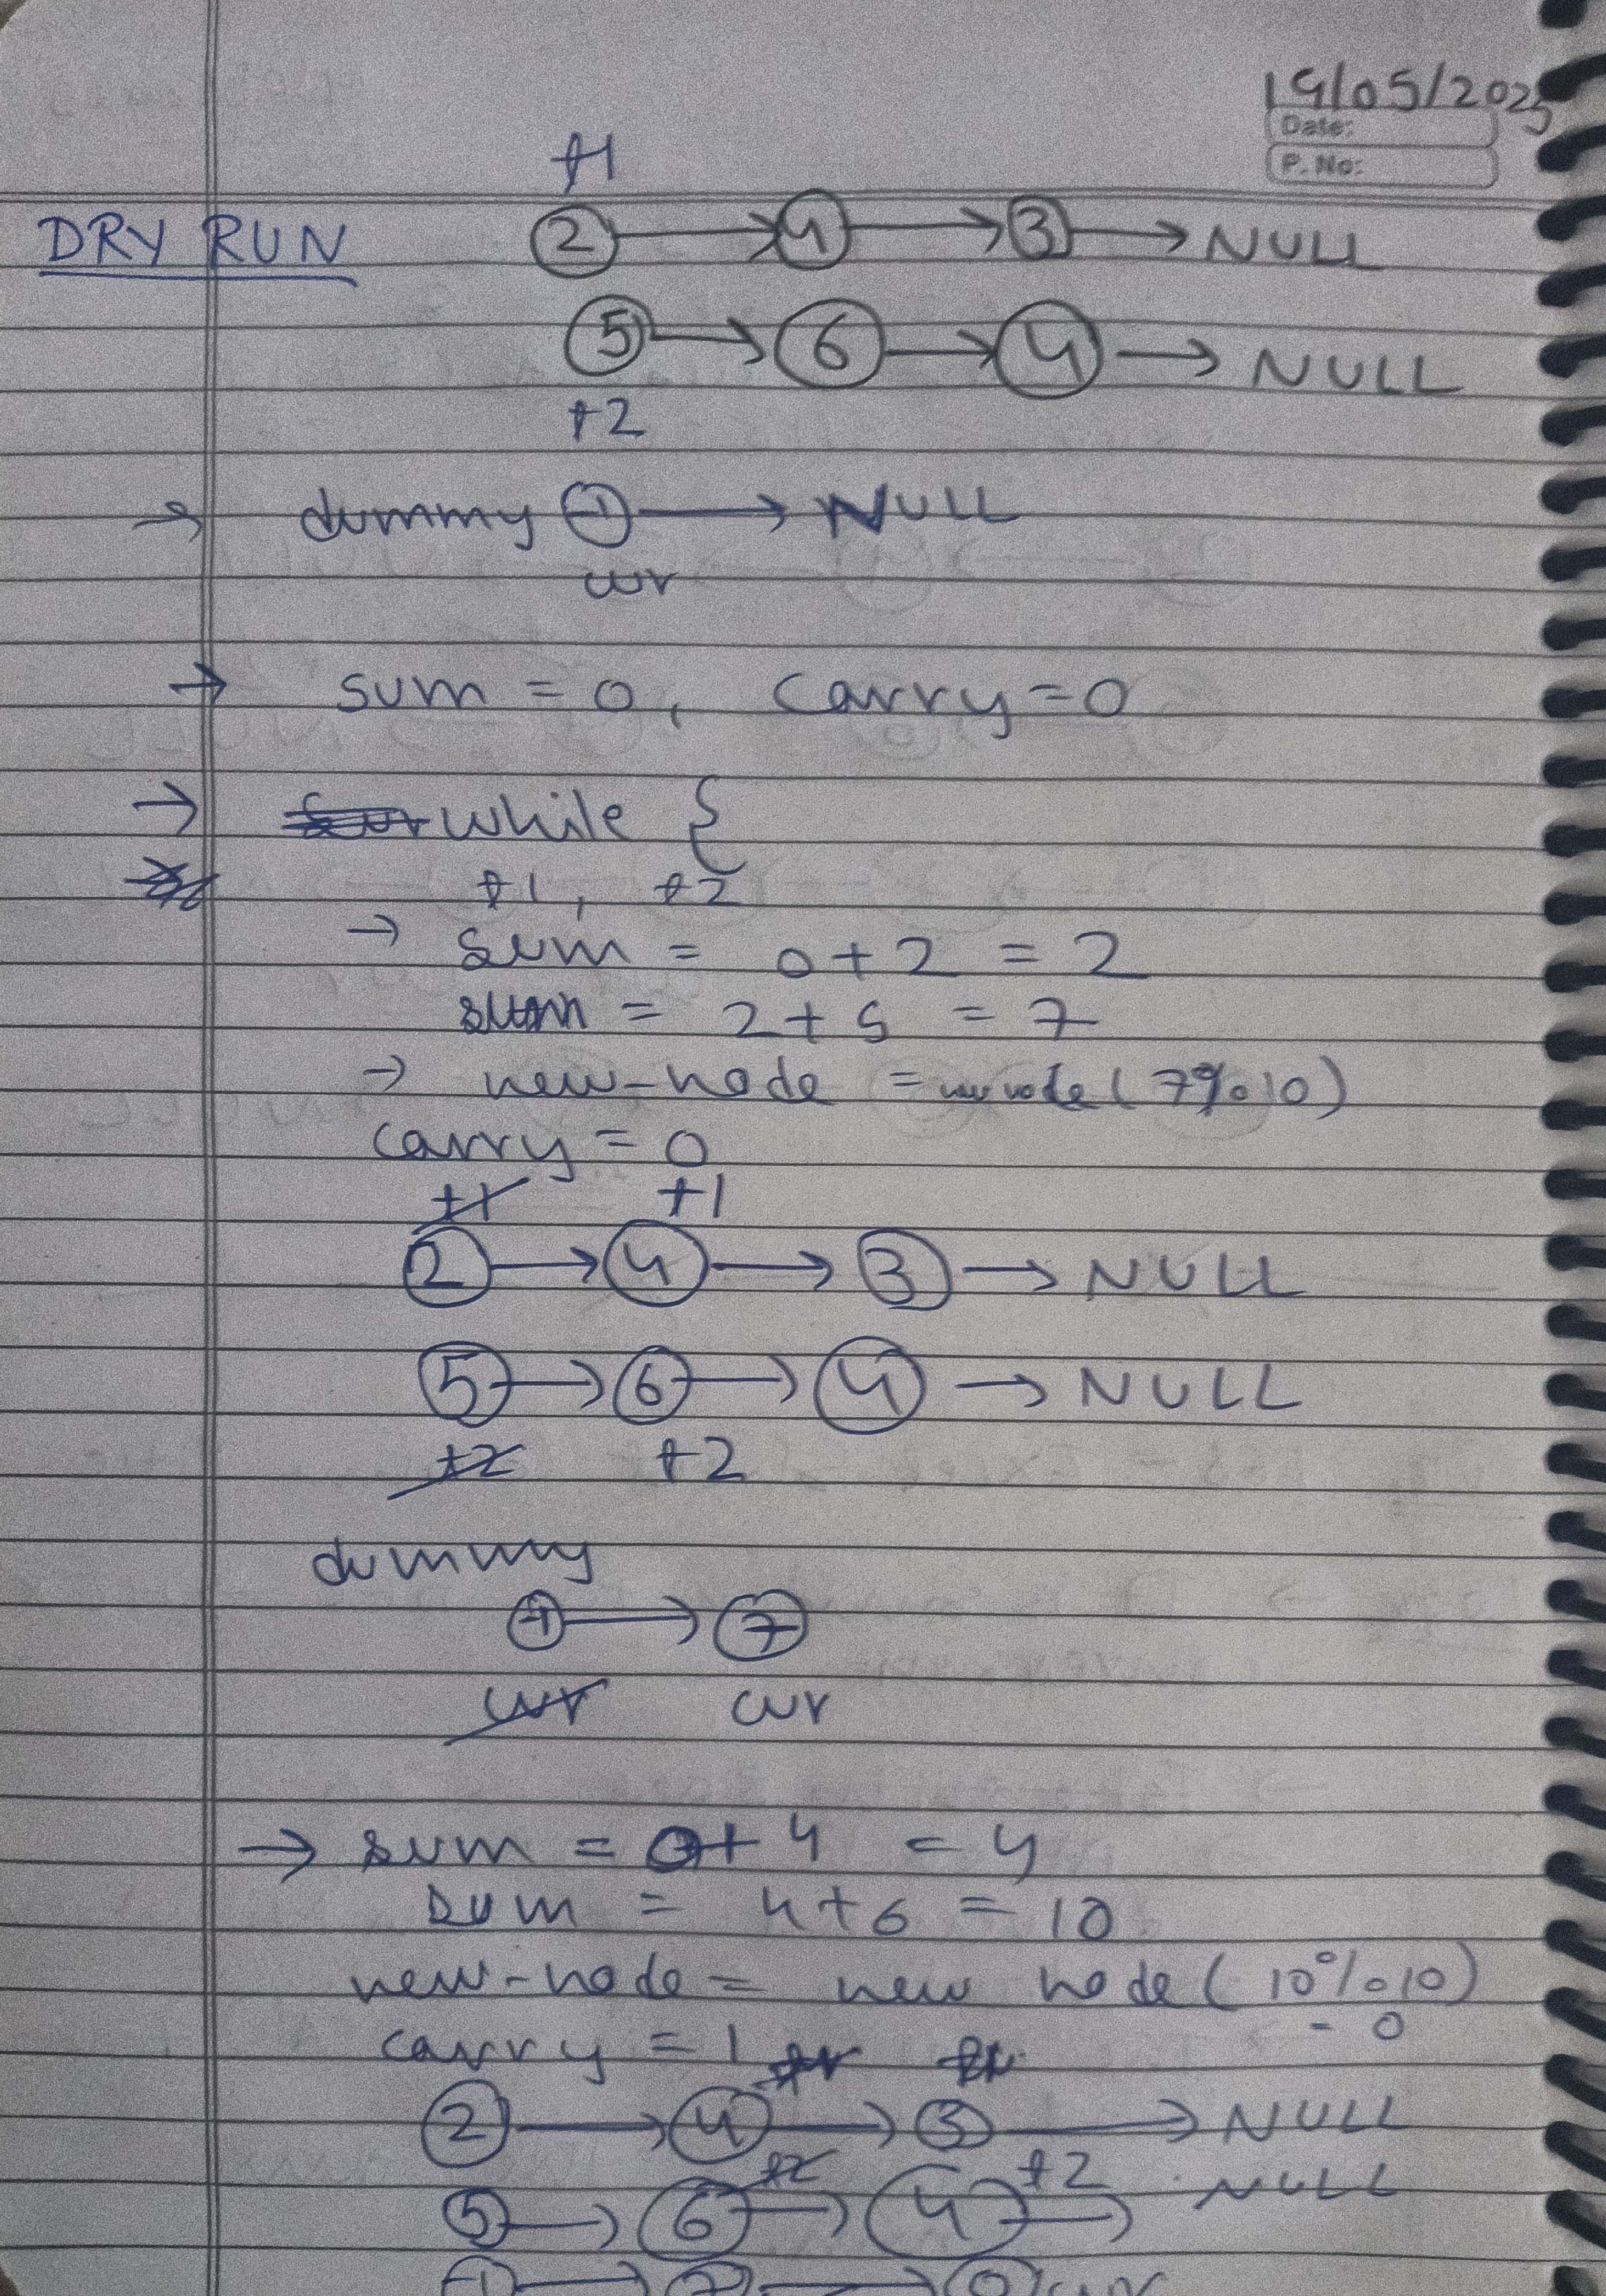 19/05/2025
Date:
P. No:
t1
DRY RUN 2 → 4 → 3 → NULL
5 → 6 → 4 → NULL
t2
→ dummy -1 → NULL
curr
→ sum = 0, carry = 0
→ while {
t1, t2
→ sum = 0 + 2 = 2
sum = 2 + 5 = 7
→ new-node = new node (7%10)
carry = 0
t1 t1
2 → 4 → 3 → NULL
5 → 6 → 4 → NULL
t2 t2
dummy
-1 → 7
curr curr
→ sum = 0 + 4 = 4
sum = 4 + 6 = 10
new-node = new node (10%10)
= 0
carry = 1
2 → 4 → 3 → NULL
t2 t2
5 → 6 → 4 → NULL
-1 → 7 → 0 curr